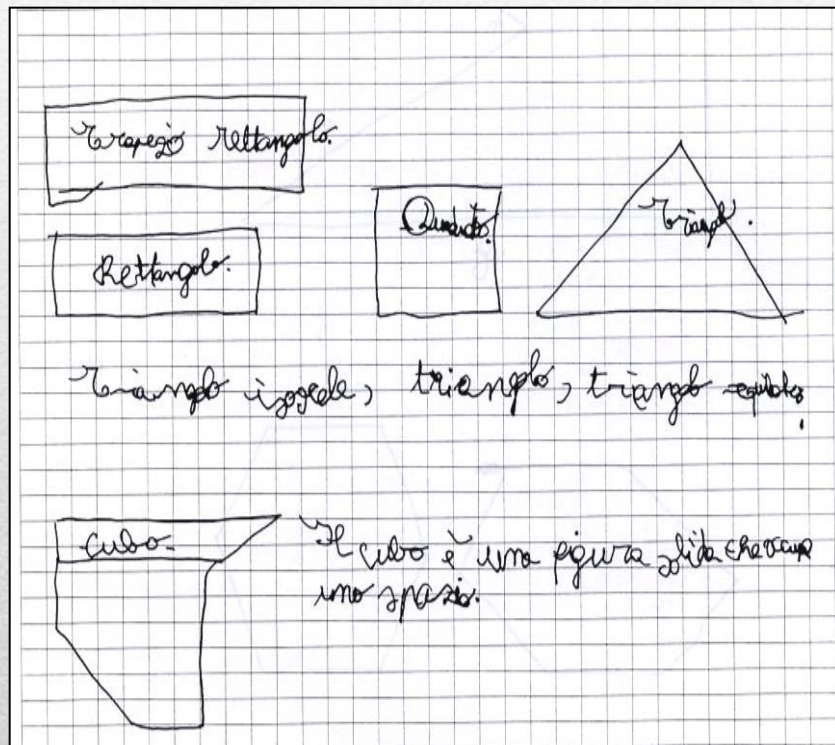 Trapezio rettangolo.
Rettangolo.
Quadrato.
Triangolo.
Triangolo isoscele, triangolo, triangolo equilatero
Cubo.
Il cubo è una figura solida che occupa
uno spazio.